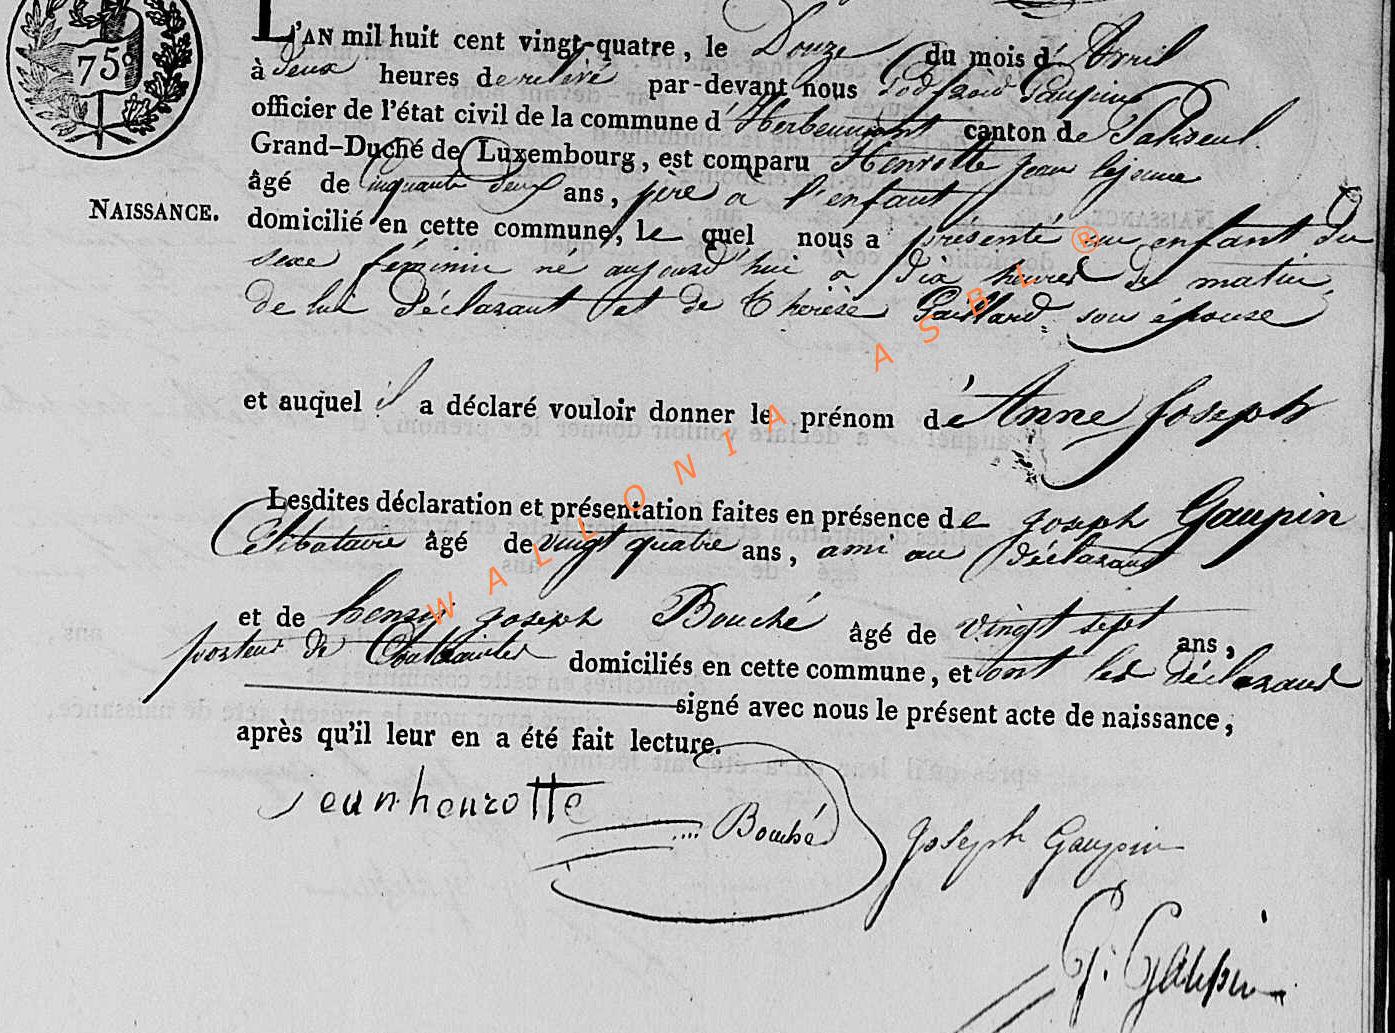 75c
L'AN mil huit cent vingt-quatre, le Douze du mois d' Avril
à deux heures de relevé par-devant nous Godfroid Gaupin
officier de l'état civil de la commune d' Herbeumont canton de Paliseul
Grand-Duché de Luxembourg, est comparu Henrotte jean lejeune
âgé de cinquante deux ans, père a l'enfant
NAISSANCE.
domicilié en cette commune, le quel nous a présenté un enfant du
sexe féminin né aujourd'hui à dix heures du matin,
de lui Déclarant et de Thérèse Gaillard son épouse
et auquel il a déclaré vouloir donner le prénom dé Anne Joseph
Lesdites déclaration et présentation faites en présence de joseph Gaupin
Célibataire âgé de vingt quatre ans, ami au déclarant
et de henry joseph Bouché âgé de vingt sept ans,
porteur de domiciliés en cette commune, et ont les déclarant
signé avec nous le présent acte de naissance,
après qu'il leur en a été fait lecture.
jeanhenrotte Bouché joseph Gaupin
G. Gaupin
WALLONIA ASBL ®